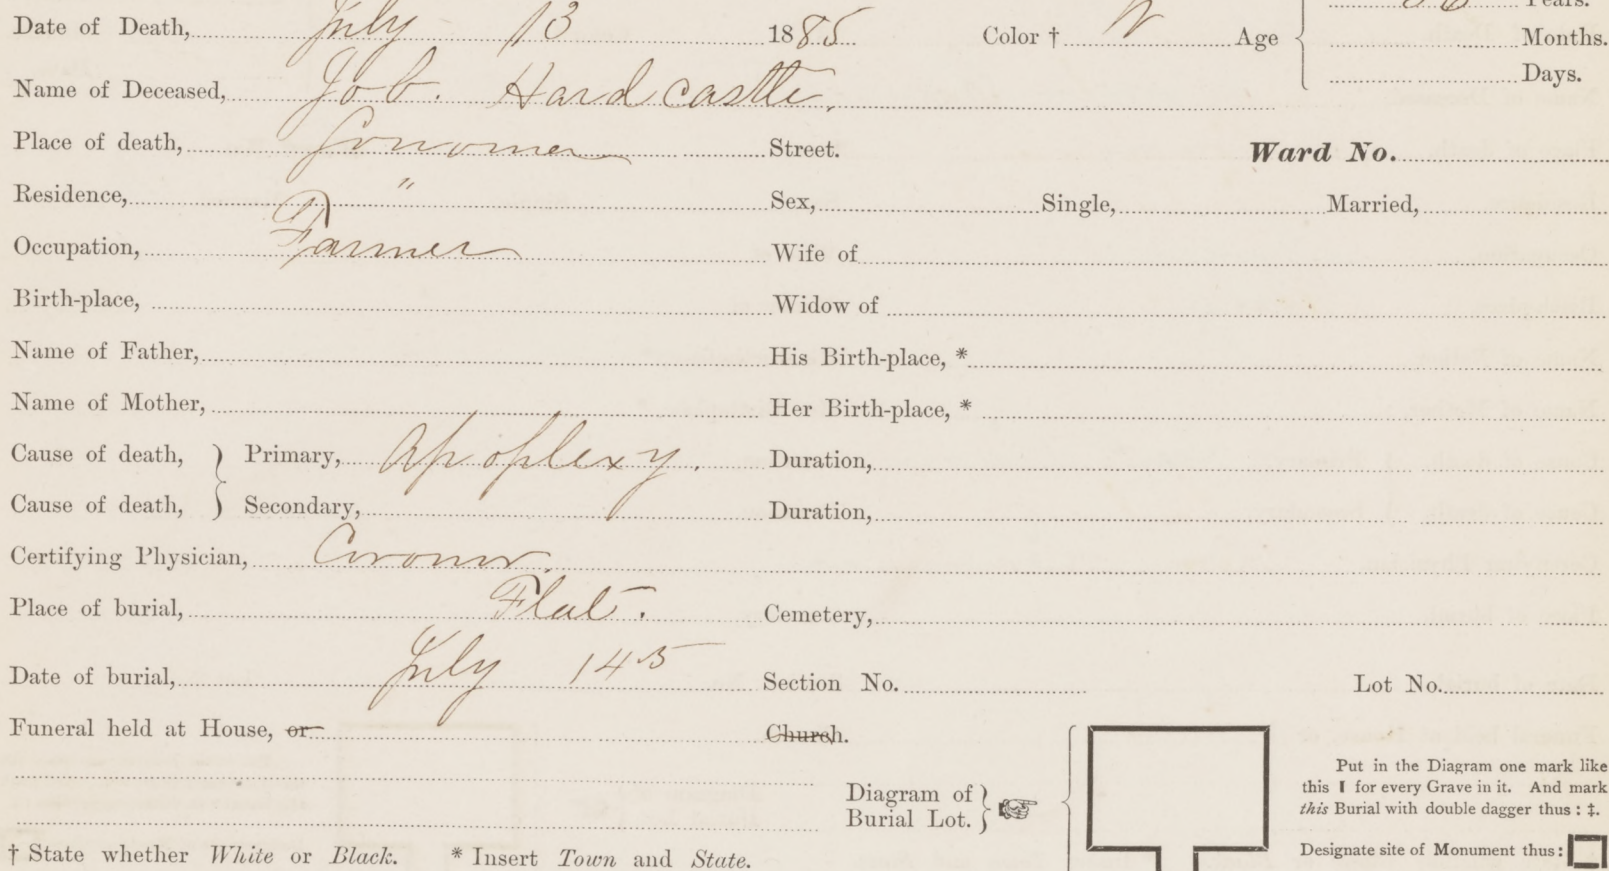 Date of Death, July 13 1885 Color † W Age Years.
Months.
Days.
Name of Deceased, Job. Hardcastle.
Place of death, Street. Ward No.
Residence, " Sex, Single, Married,
Occupation, Farmer Wife of
Birth-place, Widow of
Name of Father, His Birth-place, *
Name of Mother, Her Birth-place, *
Cause of death, } Primary, Apoplexy. Duration,
Cause of death, } Secondary, Duration,
Certifying Physician, Coroner.
Place of burial, Flat. Cemetery,
Date of burial, July 14 Section No. Lot No.
Funeral held at House, or Church.
Diagram of
Burial Lot. } ☞
Put in the Diagram one mark like
this I for every Grave in it. And mark
this Burial with double dagger thus : ‡.
Designate site of Monument thus :
† State whether White or Black. * Insert Town and State.